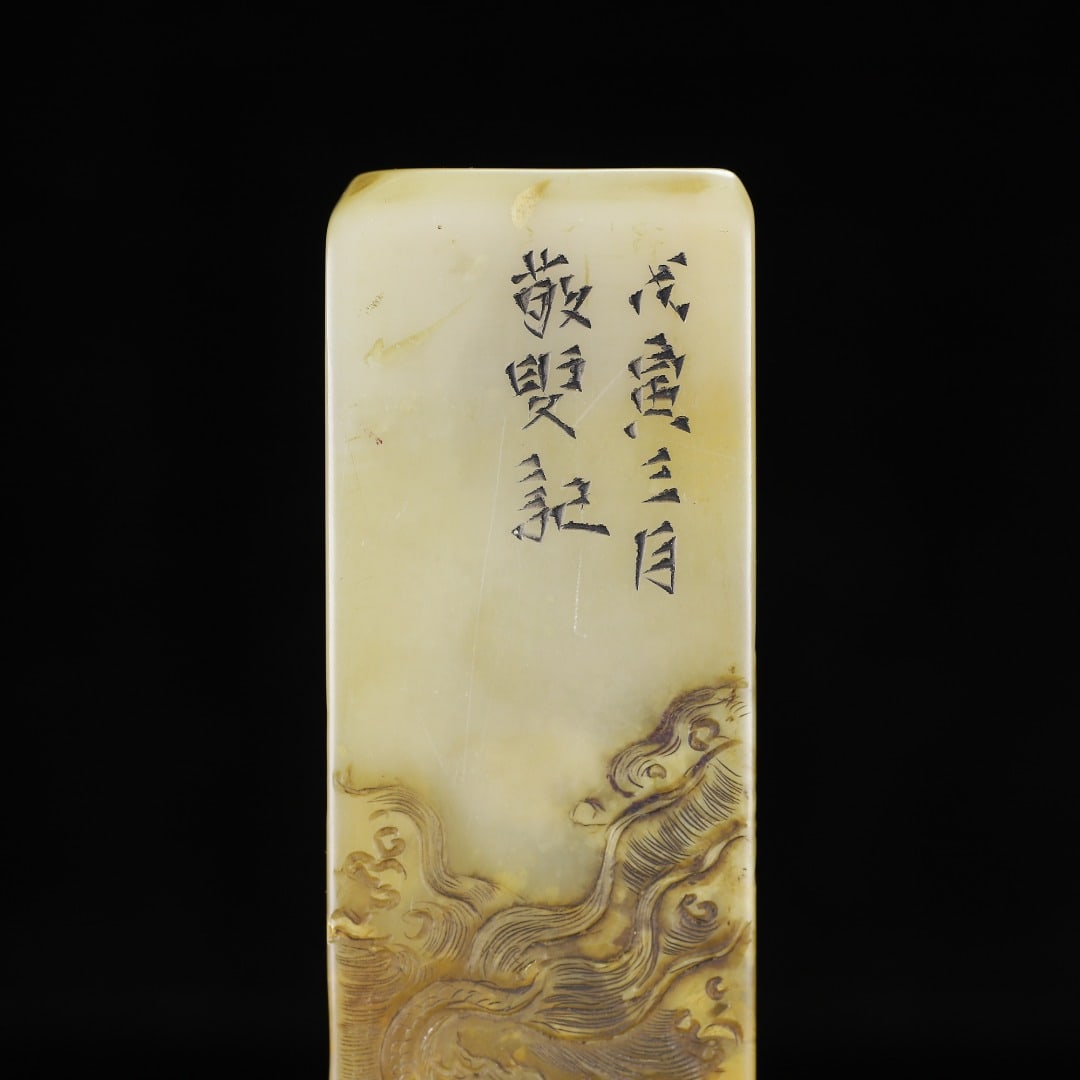 戊寅三月
敬叟記